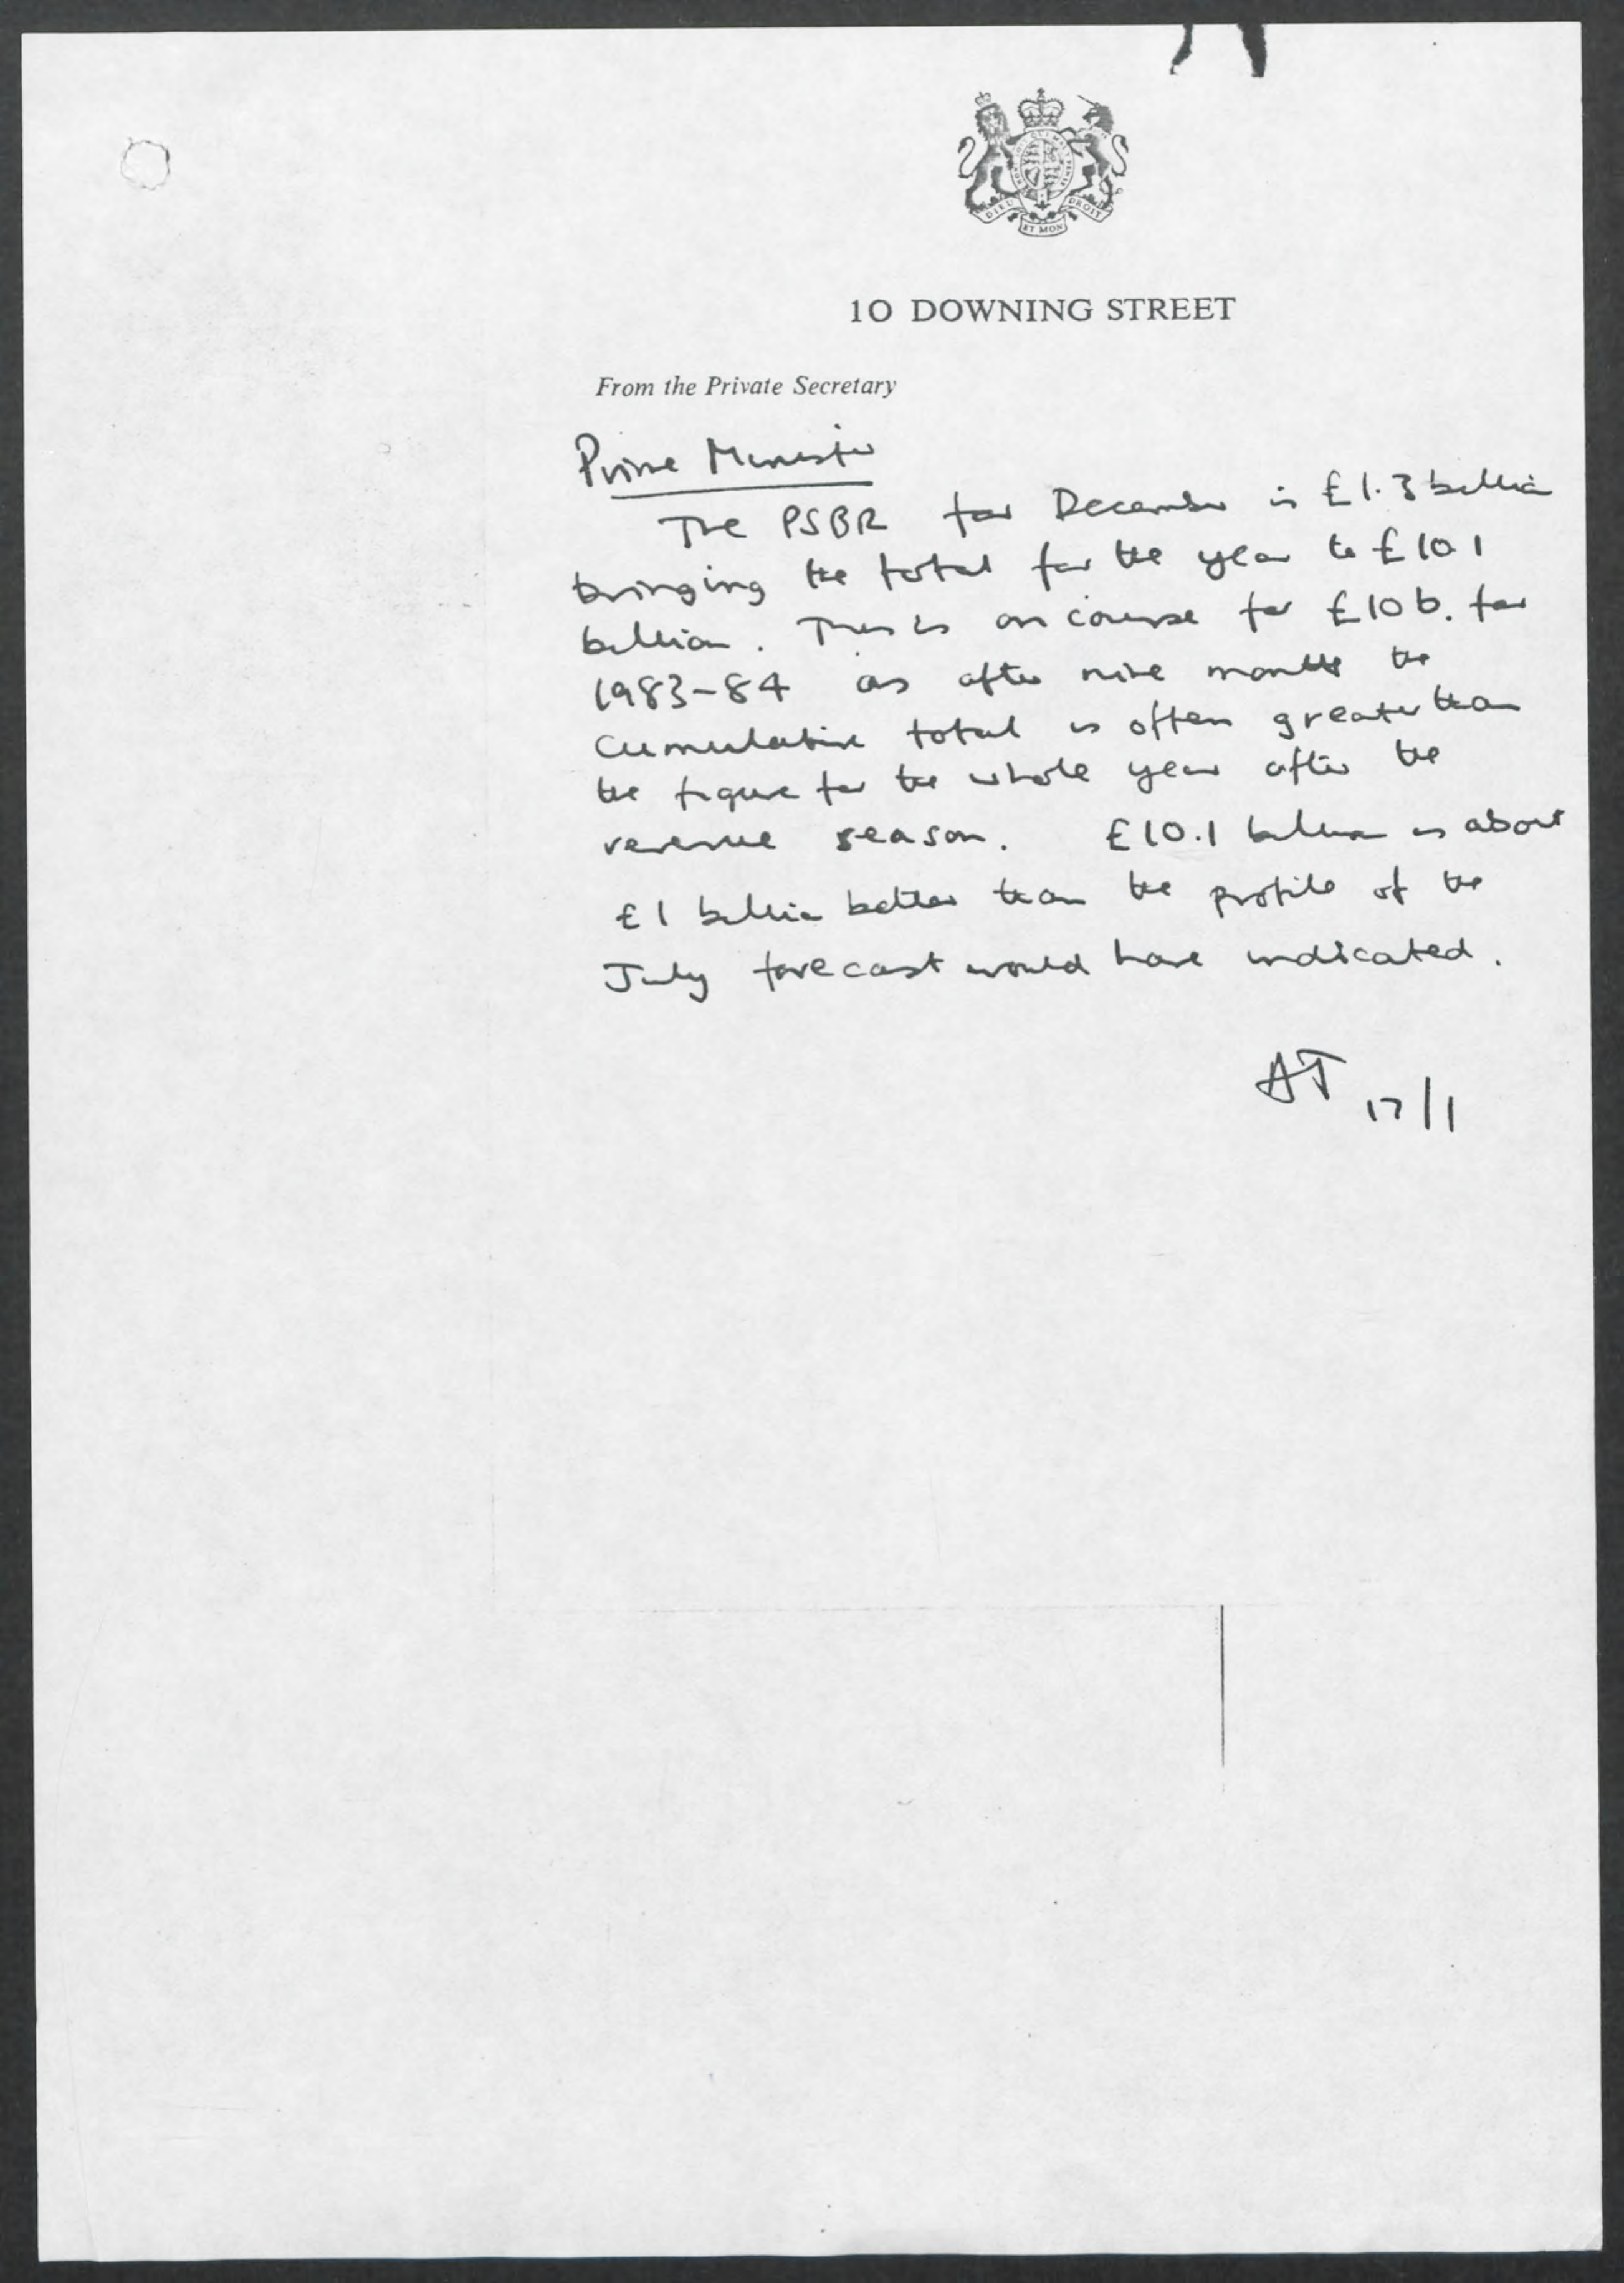 DIEU ET MON DROIT
10 DOWNING STREET
From the Private Secretary
Prime Minister
The PSBR for December is £1.3 billion
bringing the total for the year to £10.1
billion. This is on course for £10 b. for
1983-84 as after nine months the
cumulative total is often greater than
the figure for the whole year after the
revenue season. £10.1 billion is about
£1 billion better than the profile of the
July forecast would have indicated.
AT 17/1